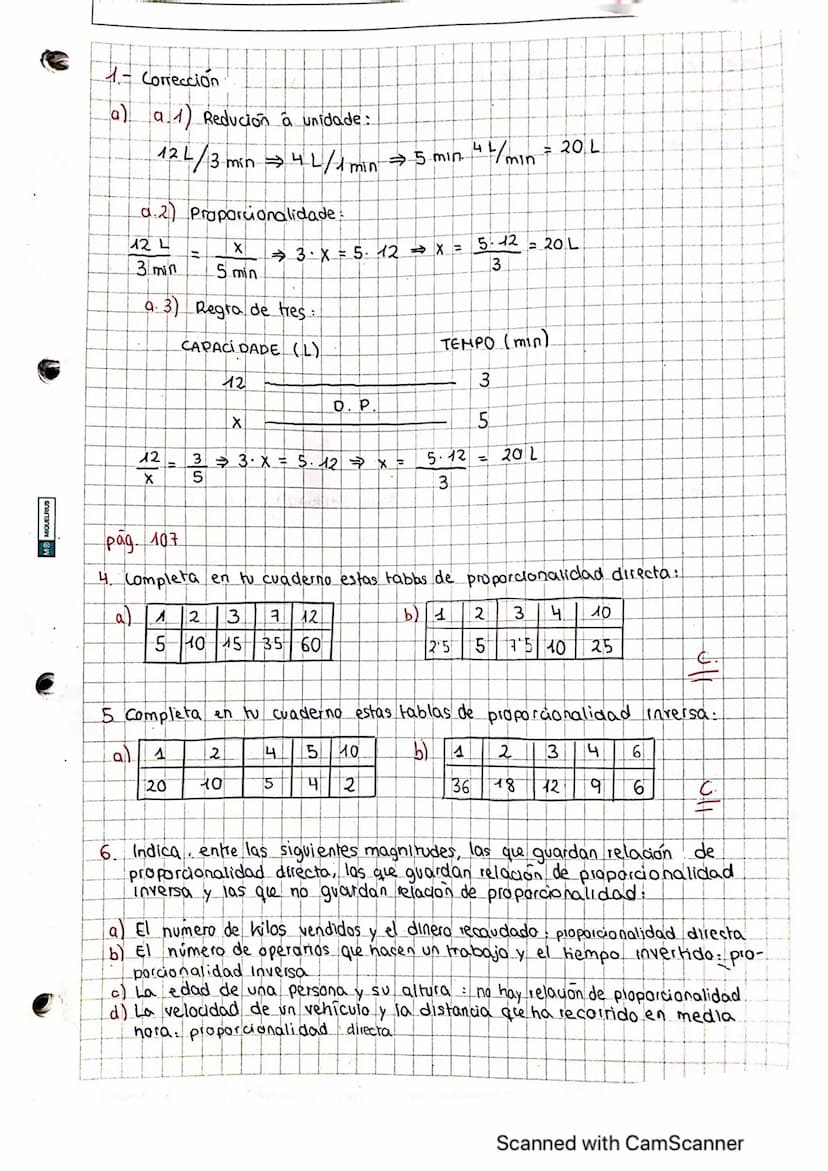 1.- Corrección
a) a.1) Redución á unidade:
12 L/3 min ⇒ 4 L/1 min ⇒ 5 min · 4 L/min = 20 L
a.2) Proporcionalidade:
12 L / 3 min = x / 5 min ⇒ 3 · x = 5 · 12 ⇒ x = 5 · 12 / 3 = 20 L
a.3) Regra de tres:
CAPACIDADE (L) TEMPO (min)
12 3
D. P.
x 5
12 / x = 3 / 5 ⇒ 3 · x = 5 · 12 ⇒ x = 5 · 12 / 3 = 20 L
MIQUELRIUS
pág. 107
4. Completa en tu cuaderno estas tablas de proporcionalidad directa:
a) 1 2 3 7 12
5 10 15 35 60
b) 1 2 3 4 10
2'5 5 7'5 10 25
C.
5 Completa en tu cuaderno estas tablas de proporcionalidad inversa:
a) 1 2 4 5 10
20 10 5 4 2
b) 1 2 3 4 6
36 18 12 9 6
C.
6. Indica, entre las siguientes magnitudes, las que guardan relación de
proporcionalidad directa, las que guardan relación de proporcionalidad
inversa y las que no guardan relación de proporcionalidad:
a) El número de kilos vendidos y el dinero recaudado: proporcionalidad directa
b) El número de operarios que hacen un trabajo y el tiempo invertido: pro-
porcionalidad inversa
c) La edad de una persona y su altura: no hay relación de proporcionalidad
d) La velocidad de un vehículo y la distancia que ha recorrido en media
hora: proporcionalidad directa
Scanned with CamScanner